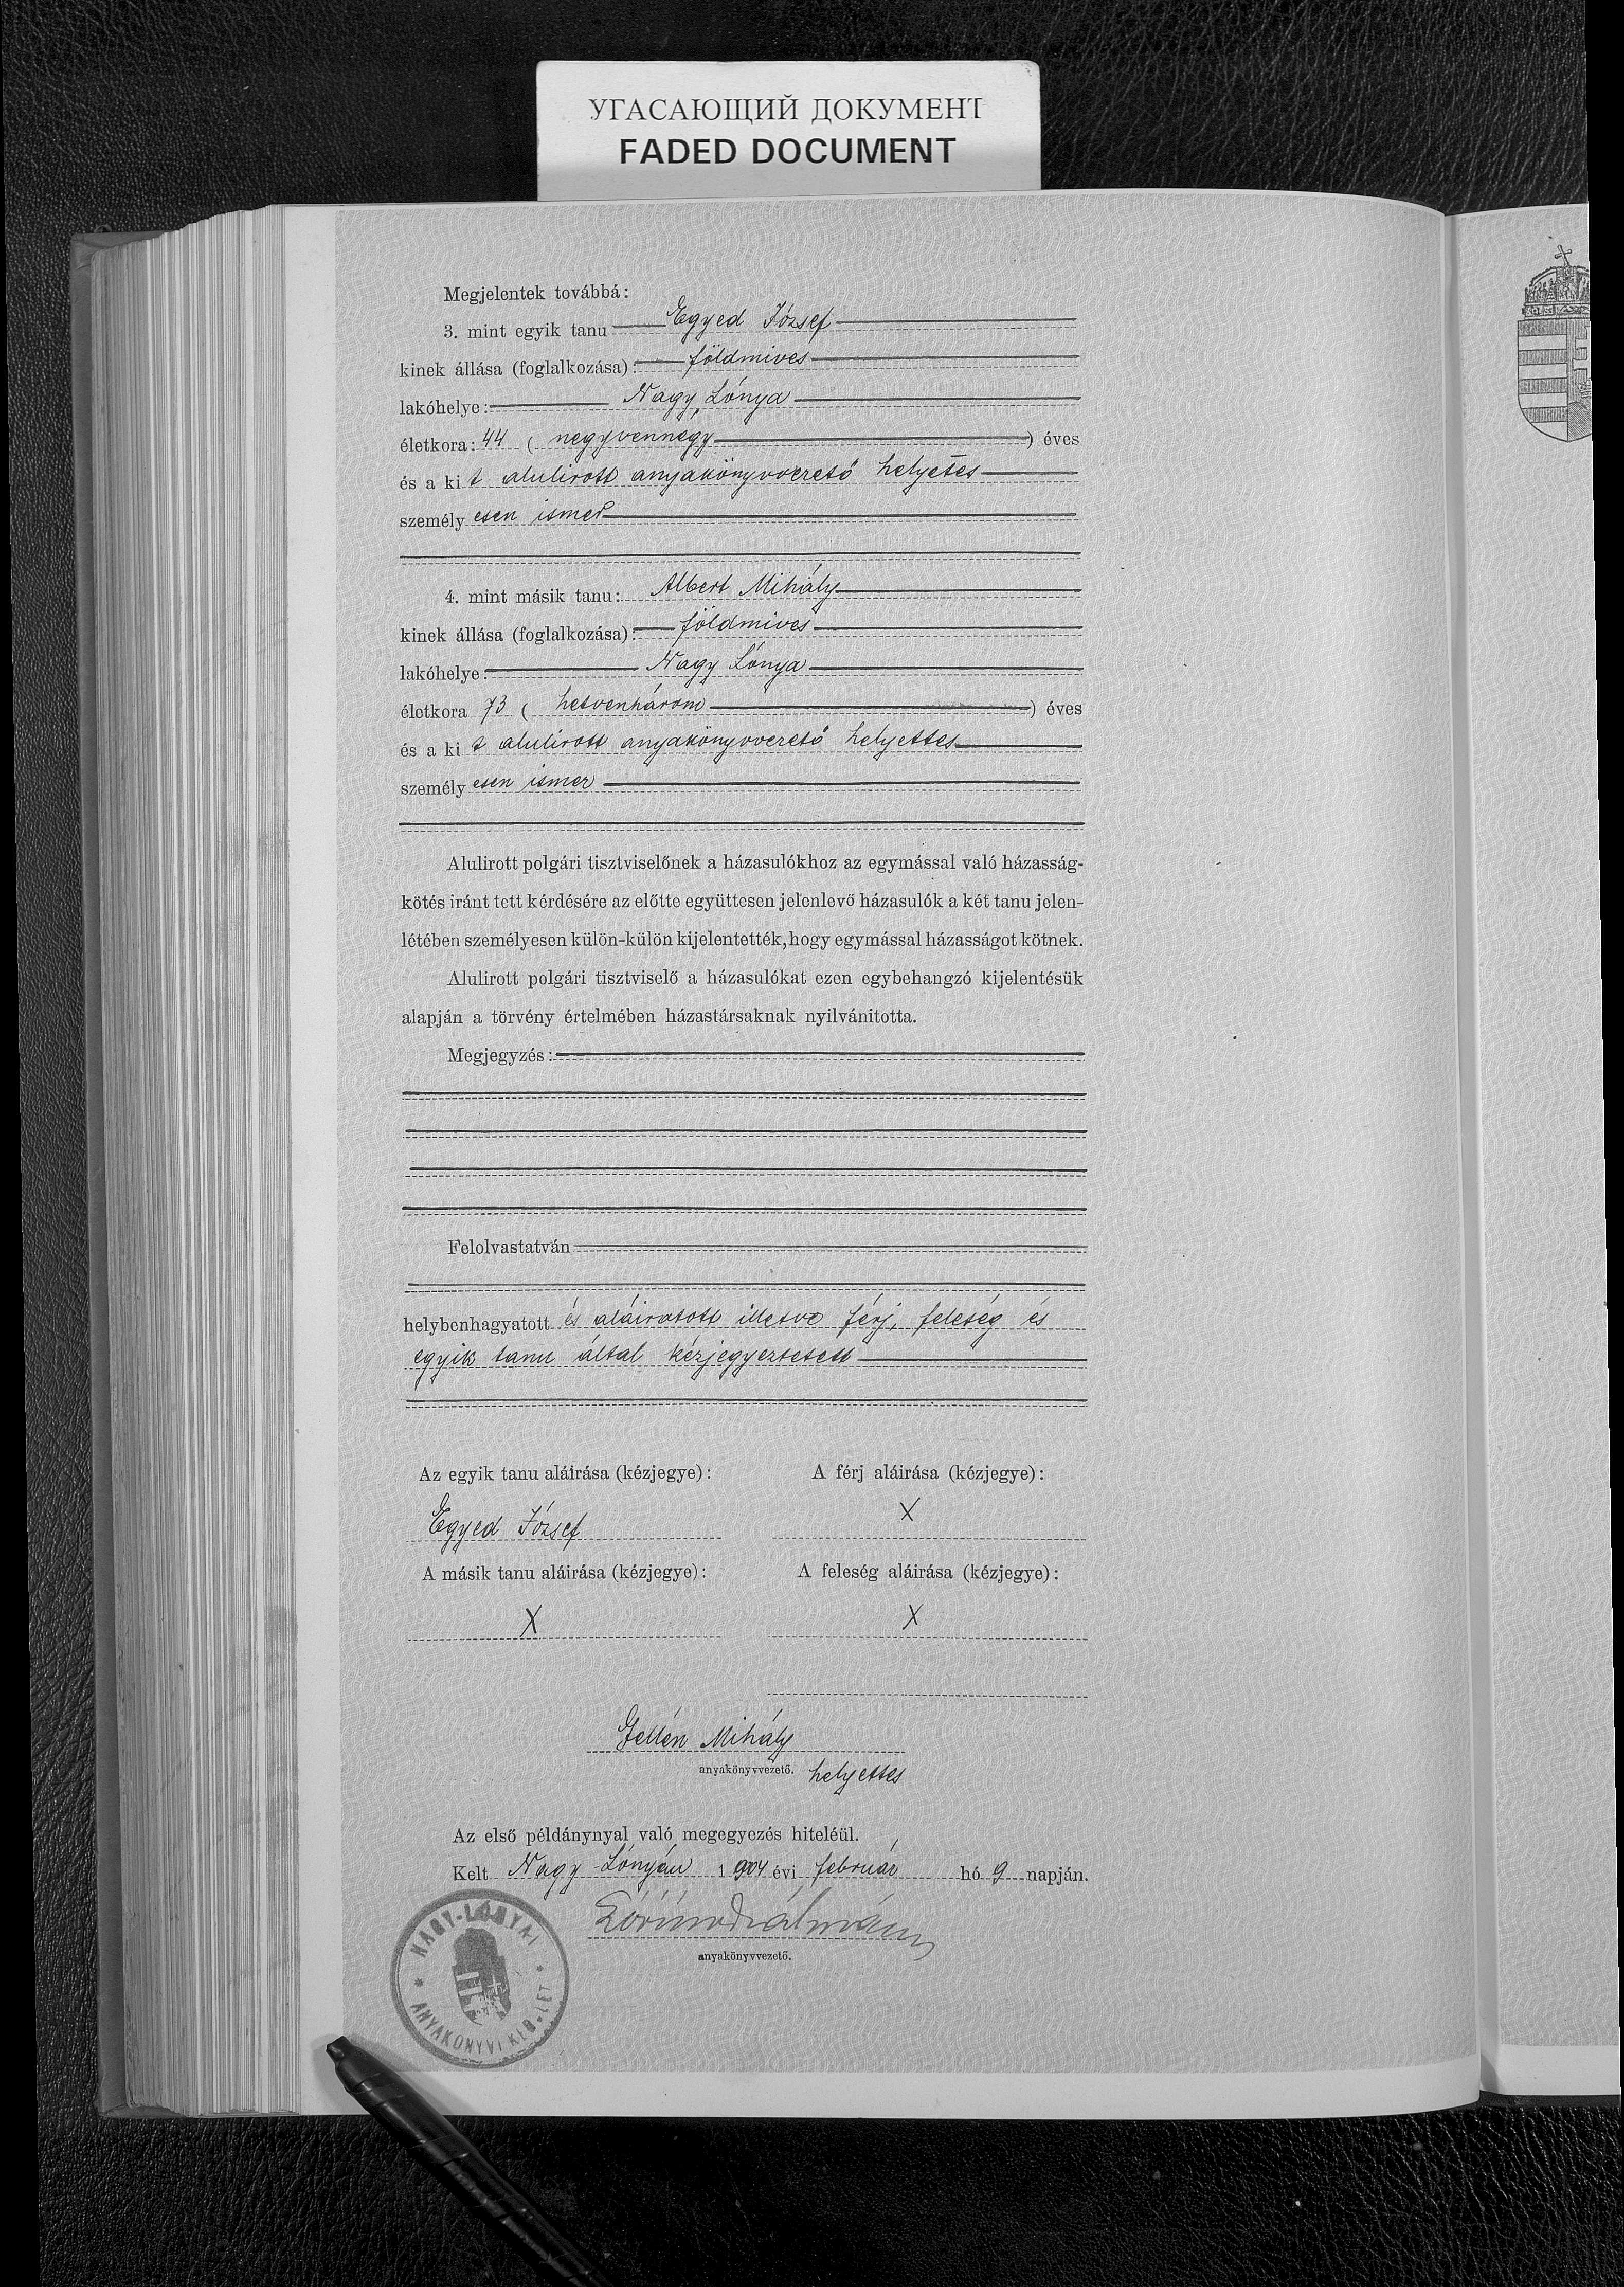 УГАСАЮЩИЙ ДОКУМЕНТ
FADED DOCUMENT
Megjelentek továbbá:
3. mint egyik tanu Egyed József
kinek állása (foglalkozása): földmives
lakóhelye: Nagy Lónya
életkora: 44 ( negyvennégy ) éves
és a ki t alulirott anyakönyvvezető helyetes
személy esen ismer
4. mint másik tanu: Albert Mihály
kinek állása (foglalkozása): földmives
lakóhelye: Nagy Lónya
életkora 73 ( hetvenhárom ) éves
és a ki t alulirott anyakönyvvezető helyettes
személy esen ismer
Alulirott polgári tisztviselőnek a házasulókhoz az egymással való házasság-
kötés iránt tett kérdésére az előtte együttesen jelenlevő házasulók a két tanu jelen-
létében személyesen külön-külön kijelentették, hogy egymással házasságot kötnek.
Alulirott polgári tisztviselő a házasulókat ezen egybehangzó kijelentésük
alapján a törvény értelmében házastársaknak nyilvánitotta.
Megjegyzés:
Felolvastatván
helybenhagyatott és aláiratott illetve férj, feleség és
egyik tanu által kézjegyeztetett
Az egyik tanu aláirása (kézjegye): A férj aláirása (kézjegye):
Egyed József X
A másik tanu aláirása (kézjegye): A feleség aláirása (kézjegye):
X X
Gellén Mihály
anyakönyvvezető. helyettes
Az első példánynyal való megegyezés hiteléül.
Kelt Nagy-Lónyán 1904 évi február hó 9 napján.
anyakönyvvezető.
NAGY-LÓNYAI
ANYAKÖNYVI KER.LET